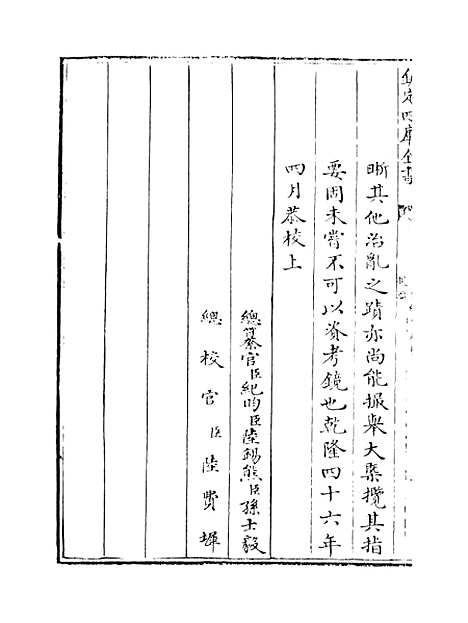 欽定四庫全書
晰其他治亂之蹟亦尚能振舉大槩攬其指
要固未嘗不可以資考鏡也乾隆四十六年
四月恭校上
總纂官臣紀昀臣陸錫熊臣孫士毅
總校官臣陸費墀